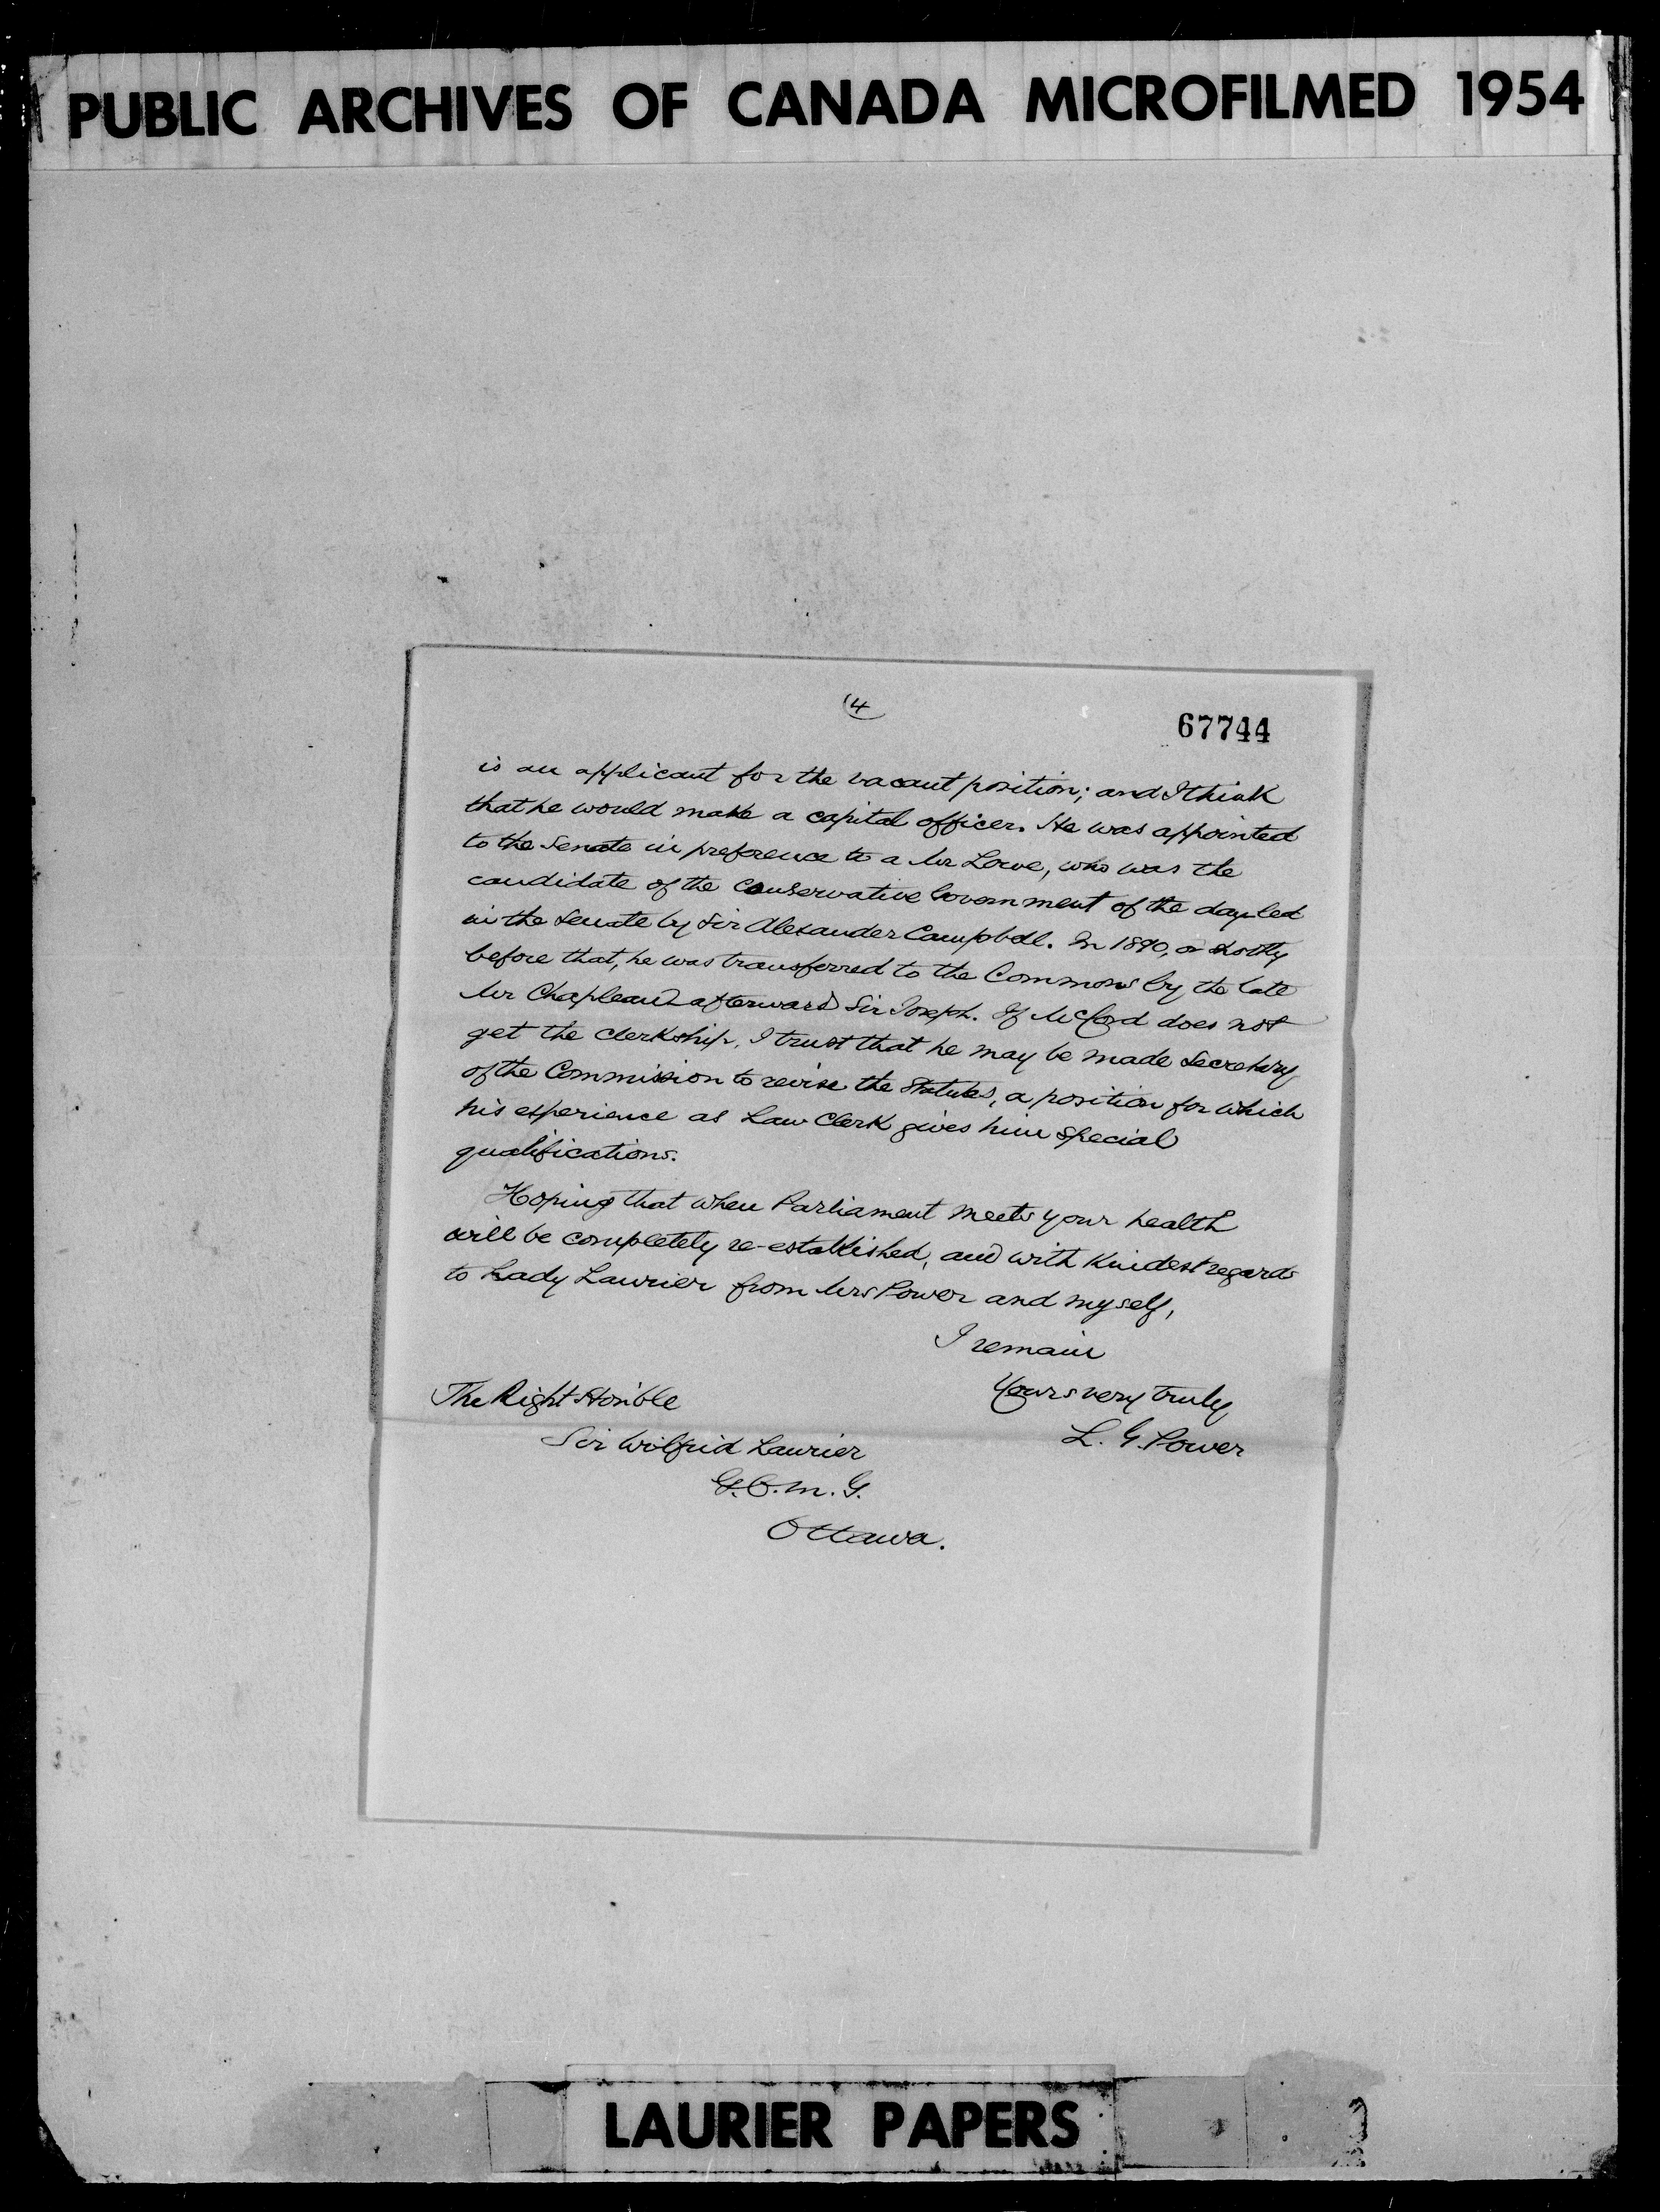 PUBLIC ARCHIVES OF CANADA MICROFILMED 1954
(4
67744
is an applicant for the vacant position; and I think
that he would make a capital officer. He was appointed
to the Senate in preference to a Mr Lowe, who was the
candidate of the Conservative Government of the day led
in the Senate by Sir Alexander Campbell. In 1890, or shortly
before that, he was transferred to the Commons by the late
Mr Chapleau afterward Sir Joseph. If McCord does not
get the clerkship, I trust that he may be made Secretary
of the Commission to revise the Statutes, a position for which
his experience as Law Clerk gives him special
qualifications.
Hoping that when Parliament meets your health
will be completely re-established, and with kindest regards
to Lady Laurier from Mrs Power and myself,
I remain
Yours very truly
L. G. Power
The Right Hon'ble
Sir Wilfrid Laurier
G.C.M.G.
Ottawa.
LAURIER PAPERS